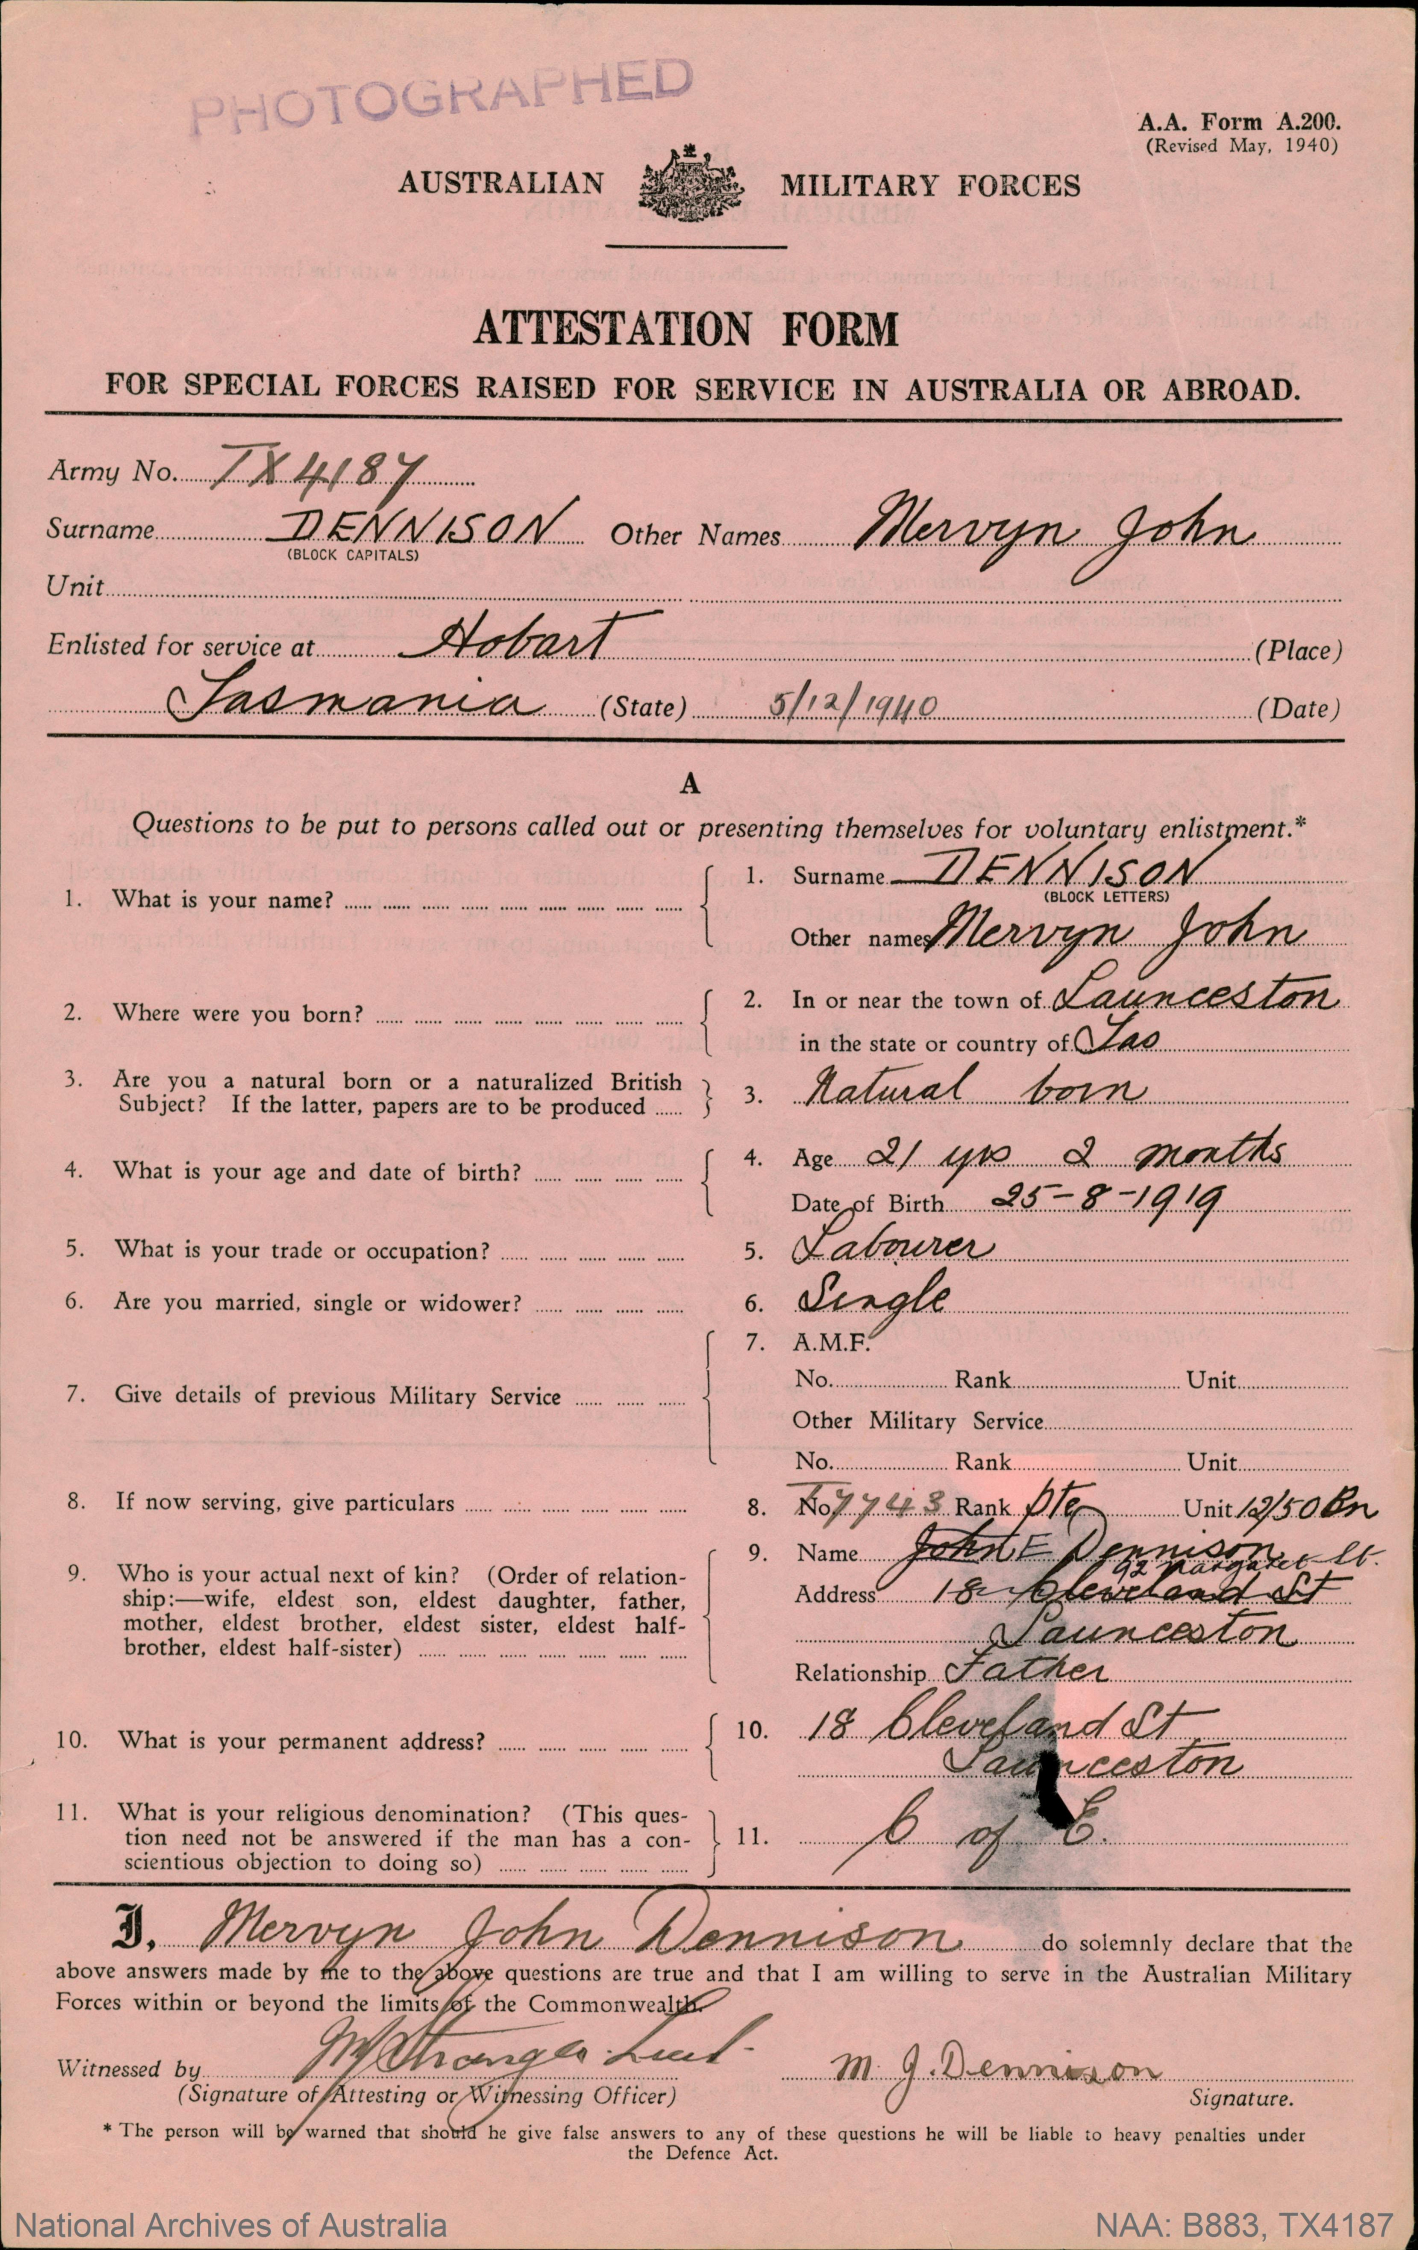 PHOTOGRAPHED
A.A. Form A.200.
(Revised May, 1940)
AUSTRALIAN MILITARY FORCES
ATTESTATION FORM
FOR SPECIAL FORCES RAISED FOR SERVICE IN AUSTRALIA OR ABROAD.
Army No. TX4187
Surname DENNISON Other Names Mervyn John
(BLOCK CAPITALS)
Unit
Enlisted for service at Hobart (Place)
Tasmania (State) 5/12/1940 (Date)
A
Questions to be put to persons called out or presenting themselves for voluntary enlistment.*
1. What is your name? 1. Surname DENNISON
(BLOCK LETTERS)
Other names Mervyn John
2. Where were you born? 2. In or near the town of Launceston
in the state or country of Tas
3. Are you a natural born or a naturalized British
Subject? If the latter, papers are to be produced 3. Natural born
4. What is your age and date of birth? 4. Age 21 yrs 2 months
Date of Birth 25-8-1919
5. What is your trade or occupation? 5. Labourer
6. Are you married, single or widower? 6. Single
7. Give details of previous Military Service 7. A.M.F.
No. Rank Unit
Other Military Service
No. Rank Unit
8. If now serving, give particulars 8. No. T7743 Rank Pte Unit 12/50 Bn
9. Who is your actual next of kin? (Order of relation-
ship:—wife, eldest son, eldest daughter, father,
mother, eldest brother, eldest sister, eldest half-
brother, eldest half-sister)
9. Name John E Dennison
92 Margaret St.
Address 18 Cleveland St
Launceston
Relationship Father
10. What is your permanent address? 10. 18 Cleveland St
Launceston
11. What is your religious denomination? (This ques-
tion need not be answered if the man has a con-
scientious objection to doing so) 11. C of E.
I, Mervyn John Dennison do solemnly declare that the
above answers made by me to the above questions are true and that I am willing to serve in the Australian Military
Forces within or beyond the limits of the Commonwealth.
Witnessed by Lieut. M. J. Dennison
(Signature of Attesting or Witnessing Officer) Signature.
* The person will be warned that should he give false answers to any of these questions he will be liable to heavy penalties under
the Defence Act.
National Archives of Australia NAA: B883, TX4187